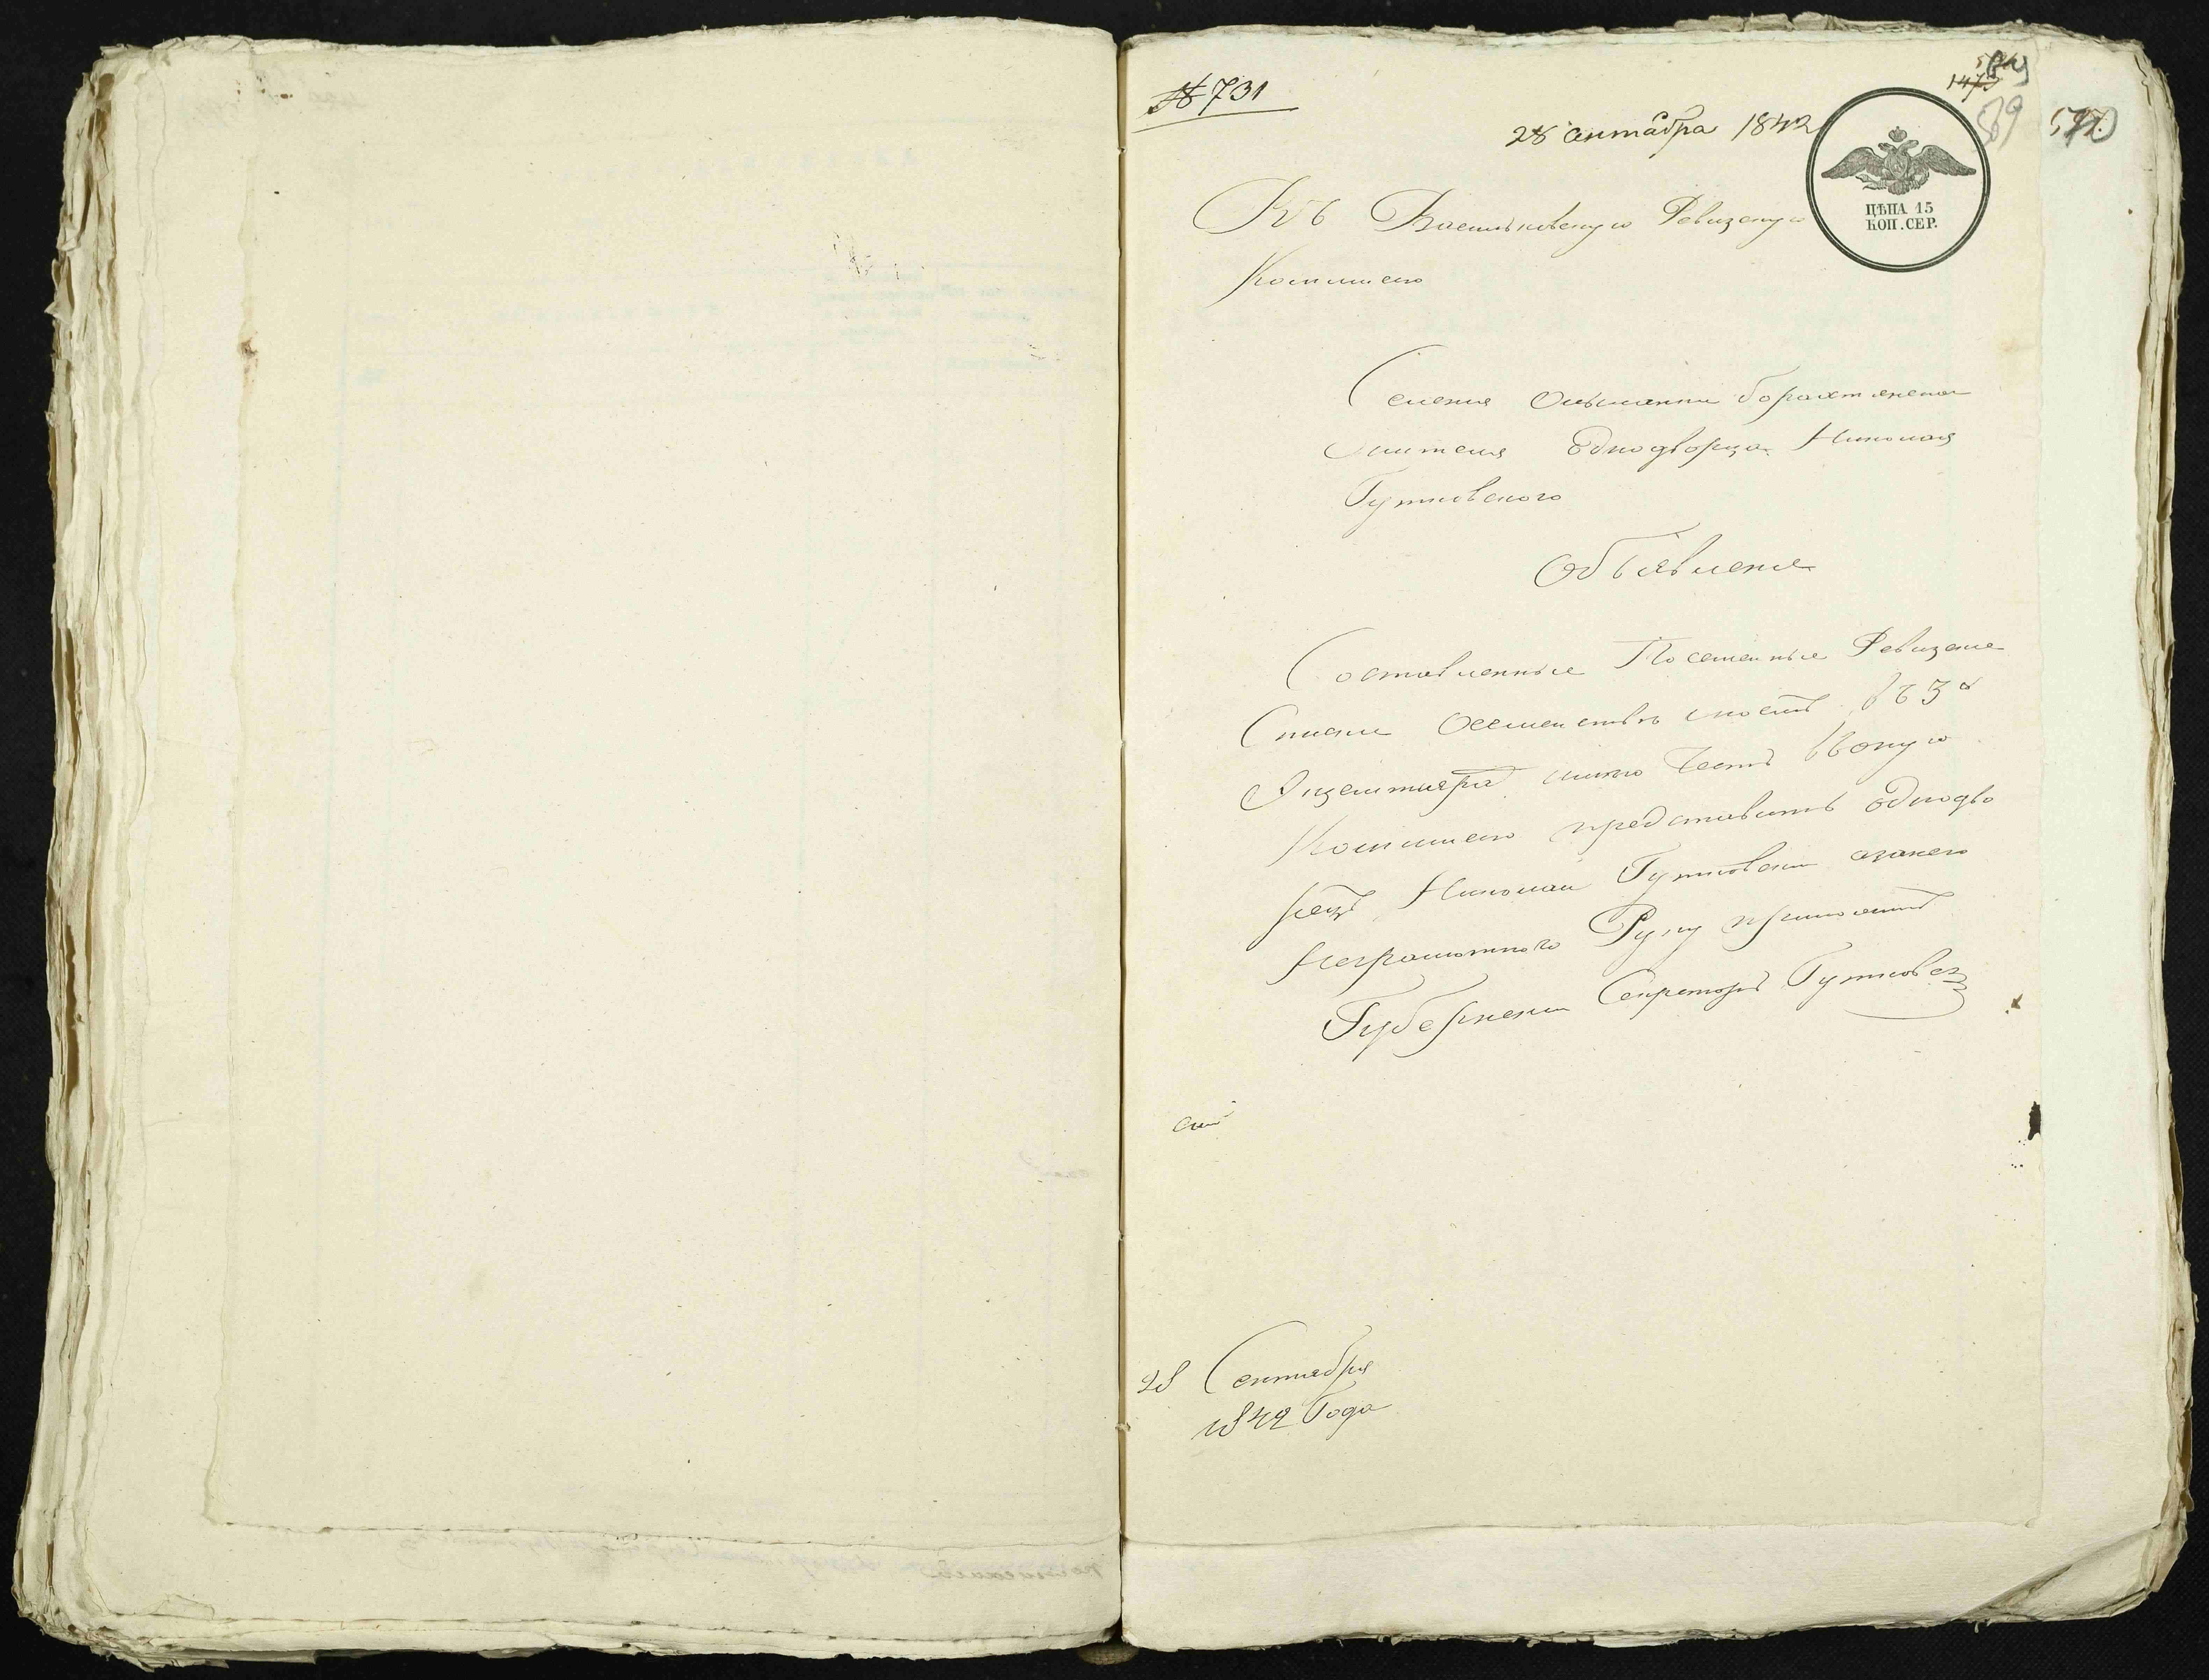 № 731
28 сентабра 1842
ЦѢНА 15
КОП. СЕР.
589
Въ Васильковскую Ревизскую
Комисию
Селения Ольшанки борахтянской
жителя Однодворца Николая
Гутковского
Объявление
Составленные Посемейные Ревизские
Списки Осемействе моемъ въ 3х
Экземплярахъ имею Честь въоную
Комисию представить Однодво
рецъ Николай Гутковски азанего
Неграмотного Руку приложилъ
Губернски Секретарь Гутковск
28 Сентября
1842 Года